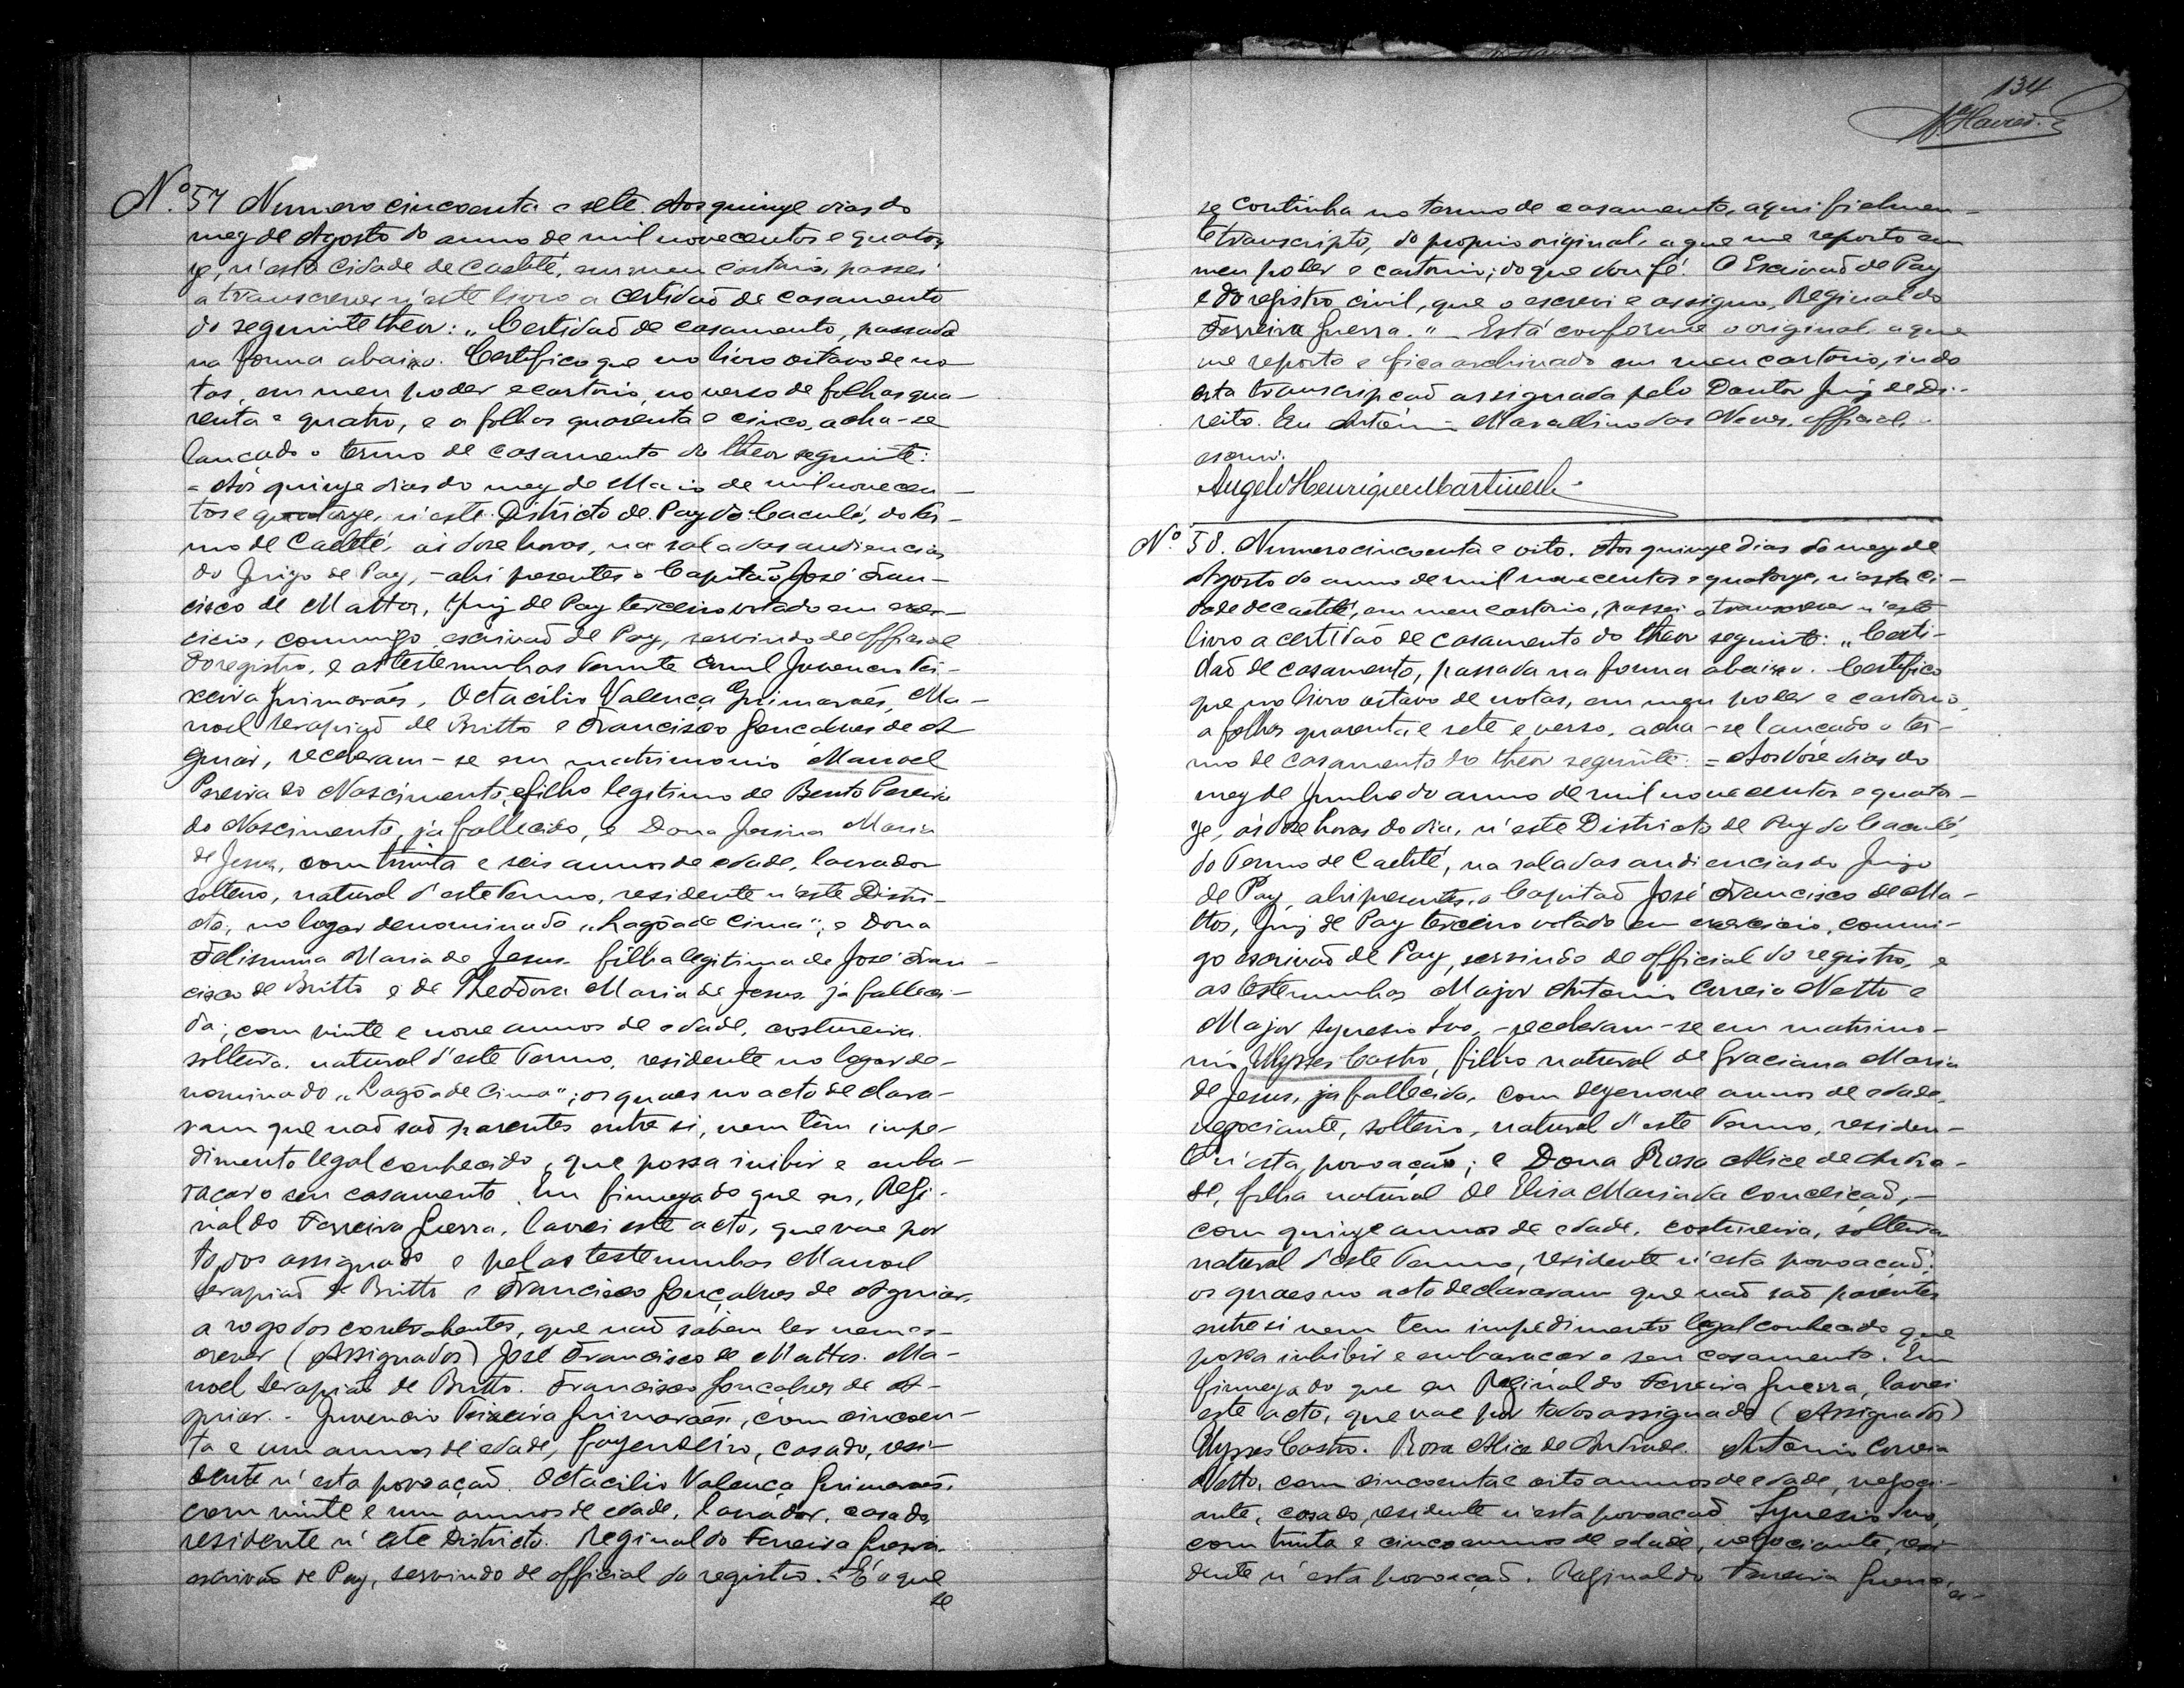 Nº. 57 Numero cincoenta e sete. Aos quinze dias do
mez de Agosto do anno de mil novecentos e quator
ze, n'esta Cidade de Caeteté, em meu cartorio, passei
a transcrever n'este livro a certidaõ de casamento
do seguinte theor: „Certidaõ de casamento, passada
na forma abaixo. Certifico que no livro oitavo de no
tas, em meu poder e cartorio, no verso de folhas qua-
renta e quatro, e a folhas quarenta e cinco, acha-se
lançado o termo de casamento do theor seguinte:
= Aos quinze dias do mez de Maio de mil novecen-
tos e quatorze, n'este Districto de Paz do Caculé, do Ter-
mo de Caeteté, ás doze horas, na sala das audiencias
do Juizo de Paz, - ahi presentes o Capitaõ José Fran-
cisco de Mattos, Juiz de Paz terceiro votado em exer-
cicio, commigo escrivaõ de Paz, servindo de official
do registro, e as testemunhas Tenente Cornel Juvencio Tei-
xeira Guimarães, Octacilio Valença Guimarães, Ma-
noel Serapiaõ de Britto e Francisco Gonçalves de A
guiar, receberam-se em matrimonio Manoel
Pereira do Nascimento, filho legitimo de Bento Pereira
do Nascimento, já fallecido, e Dona Jesina Maria
de Jesus, com trinta e seis annos de edade, lavrador
solteiro, natural d'este Termo, residente n'este Distri-
cto, no logar denominado „Lagôa de Cima"; e Dona
Felismina Maria de Jesus, filha legitima de José Fran-
cisco de Britto e de Theodora Maria de Jesus já falleci-
da; com vinte e nove annos de edade, costureira,
solteira, natural d'este Termo, residente no logar de-
nominado „Lagôa de Cima"; os quaes no acto declara-
ram que naõ saõ parentes entre si, nem têm impe-
dimento legal conhecido, que possa inibir e emba-
raçar o seu casamento. Em firmeza do que eu, Regi-
naldo Ferreira Guerra, lavrei este acto, que vae por
todos assignado e pelas testemunhas Manoel
Serapiaõ de Britto e Francisco Gonçalves de Aguiar,
a rogo dos contrahentes, que naõ sabem ler nem es-
crever (Assignados) José Francisco de Mattos. Ma-
noel Serapiaõ de Britto. Francisco Gonçalves de A-
guiar. - Juvencio Teixeira Guimarães, com cincoen-
ta e um annos de edade, fazendeiro, casado, resi-
dente n'esta povoaçaõ. Octacilio Valença Guimarães,
com vinte e um annos de edade, lavrador, casado,
residente n'este Districto. Reginaldo Ferreira Guerra,
escrivaõ de Paz, servindo de official do registro. = É o que
se
134
se continha no termo de casamento, aqui fielmen-
te transcripto, do proprio original, a que me reporto em
meu poder e cartorio; do que dou fé. O Escrivaõ de Paz
e do registro civil, que o escrevi e assigno, Reginaldo
Ferreira Guerra." - Está conforme o original, a que
me reporto e fica archivado em meu cartorio, indo
esta transcripçaõ assignada pelo Doutor Juiz de Di-
reito. Eu Antonio Marcellino das Neves, official, o
escrevi.
Angelo Henrique Martinelli
Nº. 58. Numero cincoenta e oito. Aos quinze dias do mez de
Agosto do anno de mil novecentos e quatorze, n'esta Ci-
dade de Caeteté, em meu cartorio, passei a transcrever n'este
livro a certidaõ de casamento do theor seguinte: „Certi-
daõ de casamento, passada na forma abaixo. Certifico
que no livro oitavo de notas, em meu poder e cartorio,
a folhas quarenta e sete e verso, acha-se lançado o ter-
mo de casamento do theor seguinte: = Aos doze dias do
mez de Junho do anno de mil novecentos e quator-
ze, ás doze horas do dia, n'este Districto de Paz do Caculé,
do Termo de Caeteté, na sala das audiencias do Juizo
de Paz, ahi presentes, o Capitaõ José Francisco de Ma-
ttos, Juiz de Paz terceiro votado em exercicio, commi-
go escrivaõ de Paz, servindo de official do registro, e
as testemunhas Major Antonio Correia Netto e
Major Synesio Ivo, - receberam-se em matrimo-
nio Ulysses Castro, filho natural de Graciana Maria
de Jesus, já fallecida, com dezenove annos de edade,
negociante, solteiro, natural d'este Termo, residen-
te n'esta povoaçaõ; e Dona Rosa Alice de Andra-
de, filha natural de Elisa Maria da Conceiçaõ, -
com quinze annos de edade, costureira, solteira
natural d'este Termo, residente n'esta povoaçaõ;
os quaes no acto declararam que naõ saõ parentes
entre si nem tem impedimento legal conhecido que
possa inhibir e embaraçar o seu casamento. Em
firmeza do que eu Reginaldo Ferreira Guerra, lavrei
este acto, que vae por todos assignado (Assignados)
Ulysses Castro. Rosa Alice de Andrade. Antonio Correia
Netto, com cincoenta e oito annos de edade, negoci-
ante, casado, residente n'esta povoaçaõ. Synesio Ivo,
com trinta e cinco annos de edade, negociante, resi-
dente n'esta povoaçaõ. Reginaldo Ferreira Guerra,
es-